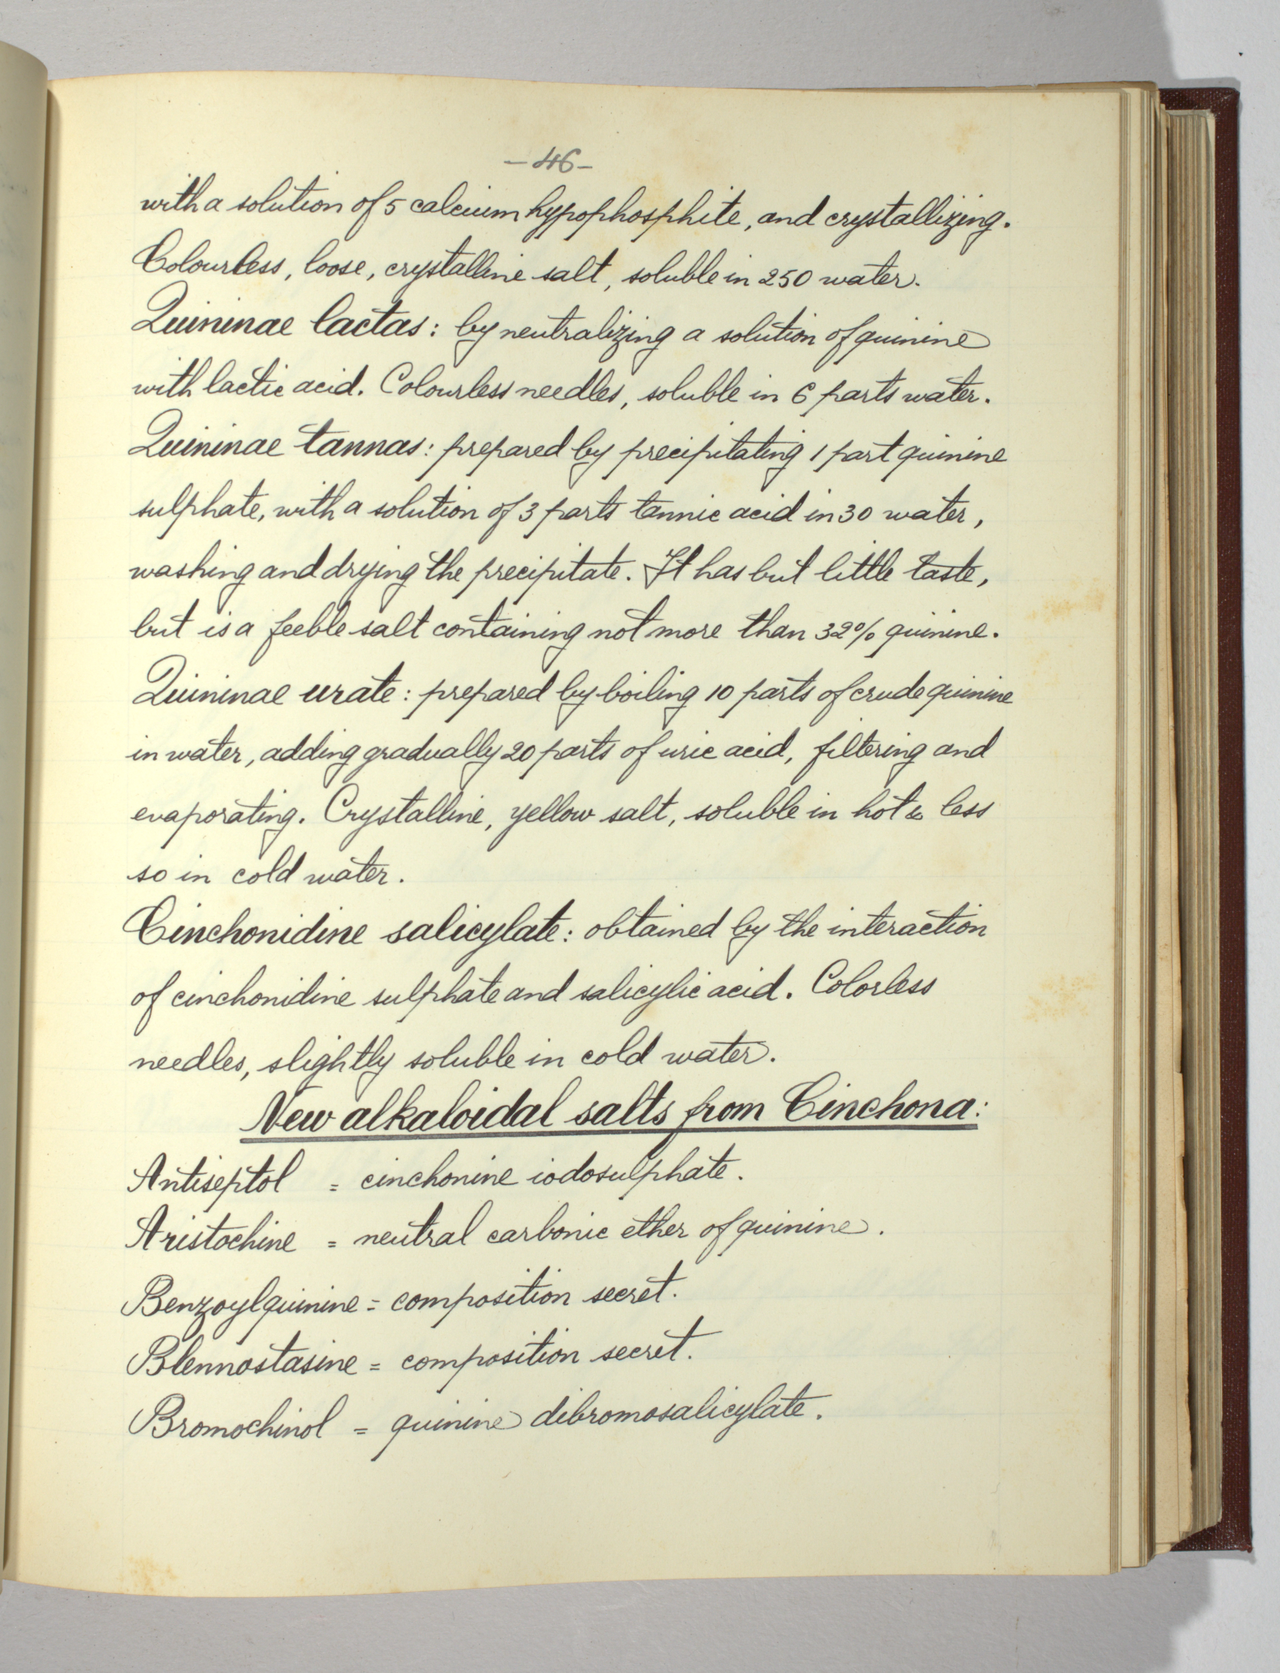 - 46 -
with a solution of 5 calcium hypophosphite, and crystallizing.
Colourless, loose, crystalline salt, soluble in 250 water.
Quininae lactas: by neutralizing a solution of quinine
with lactic acid. Colourless needles, soluble in 6 parts water.
Quininae tannas: prepared by precipitating 1 part quinine
sulphate, with a solution of 3 parts tannic acid in 30 water,
washing and drying the precipitate. It has but little taste,
but is a feeble salt containing not more than 32% quinine.
Quininae urate: prepared by boiling 10 parts of crude quinine
in water, adding gradually 20 parts of uric acid, filtering and
evaporating. Crystalline, yellow salt, soluble in hot & less
so in cold water.
Cinchonidine salicylate: obtained by the interaction
of cinchonidine sulphate and salicylic acid. Colorless
needles, slightly soluble in cold water.
New alkaloidal salts from Cinchona:
Antiseptol = cinchonine iodosulphate.
Aristochine = neutral carbonic ether of quinine.
Benzoylquinine = composition secret.
Blennostasine = composition secret.
Bromochinol = quinine dibromosalicylate.